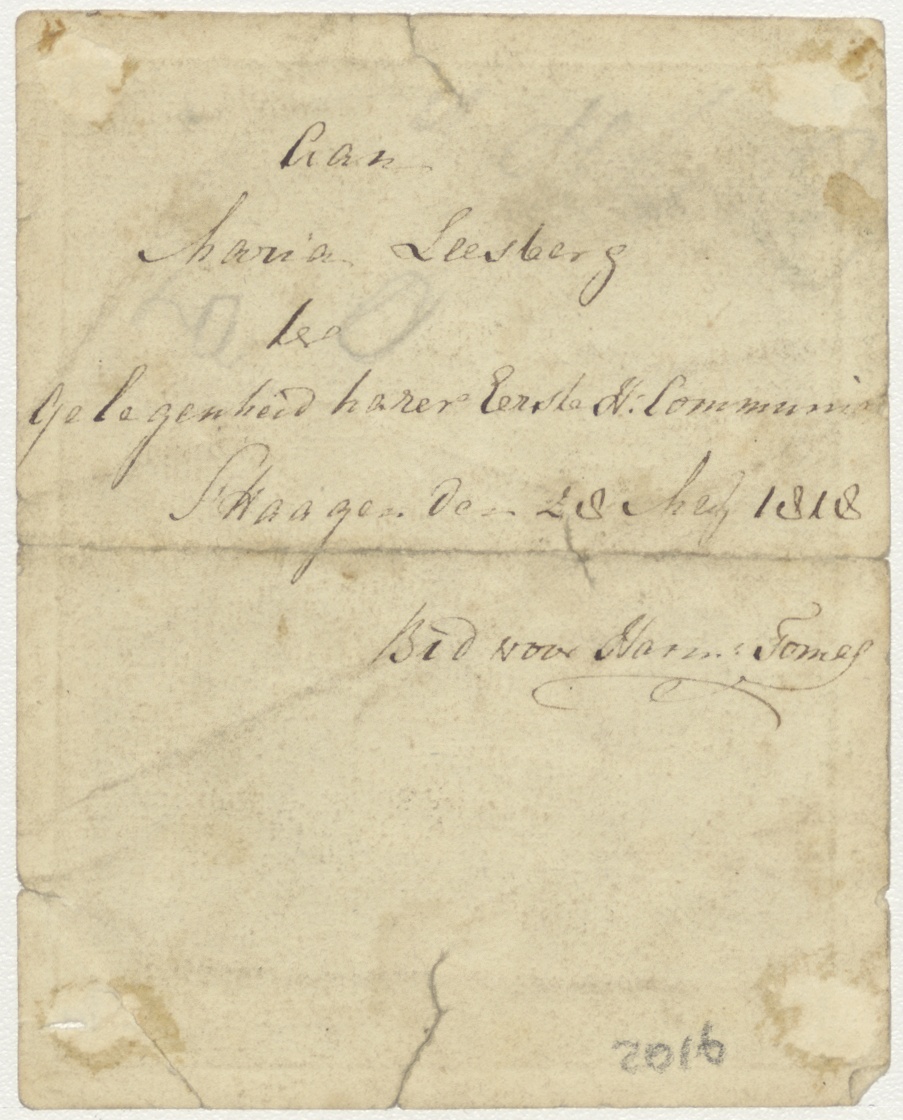 Aan
Maria Leesberg
ter
gelegenheid harer Eerste H: Communie
S'Haagen den 28 Mey 1818
Bid voor Harm:
2016